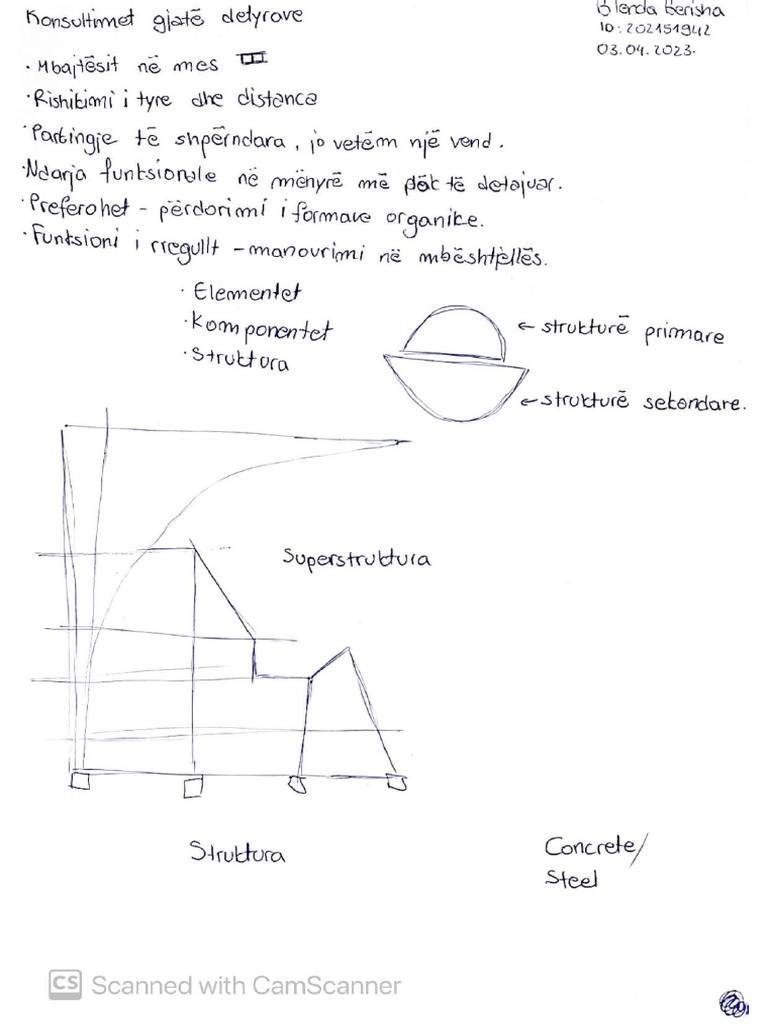 Konsultimet gjatë detyrave
Blenda Berisha
ID: 202151942
03.04.2023.
· Mbajtësit në mes
· Rishikimi i tyre dhe distanca
· Parkingje të shpërndara, jo vetëm një vend.
· Ndarja funksionale në mënyrë më të detajuar.
· Preferohet - përdorimi i formave organike.
· Funksioni i rregullt - manovrimi në mbështjellës.
· Elementet
· Komponentet
· Struktura
← strukturë primare
← strukturë sekondare.
Superstruktura
Struktura
Concrete/
Steel
CS Scanned with CamScanner